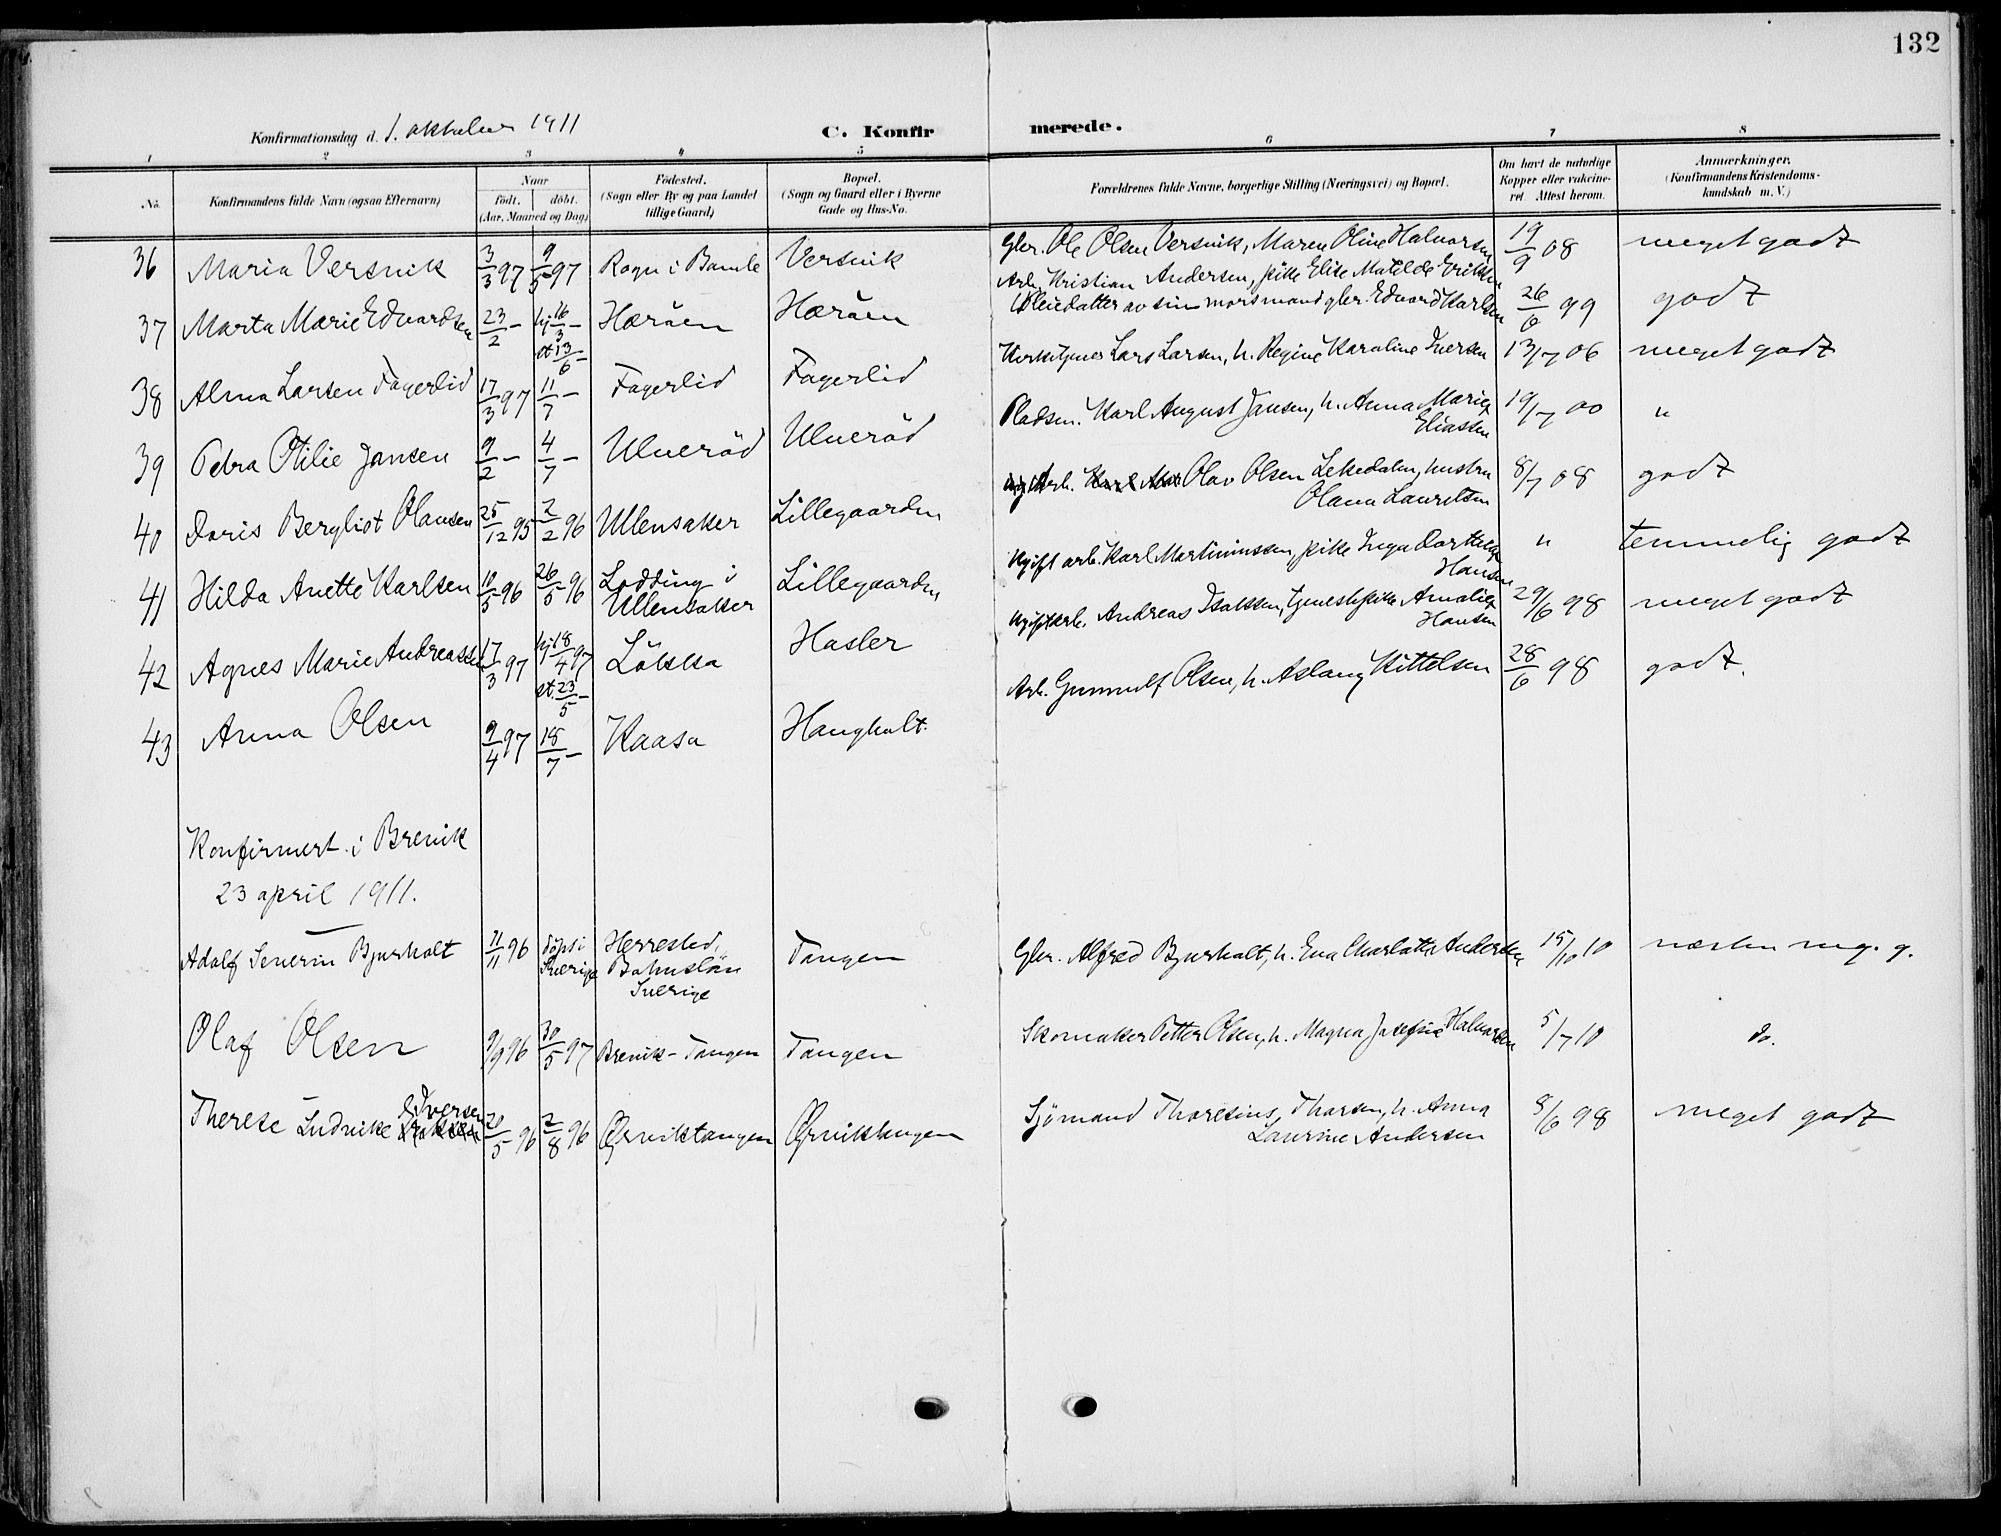 132
Konfirmationsdag d. 1. oktober 1911
C. Konfirmerede.
1 2 3 4 5 6 7 8
No.
Konfirmandens fulde Navn (ogsaa Efternavn)
Naar
født. døbt.
(Aar, Maaned og Dag)
Fødested.
(Sogn eller By og paa Landet
tillige Gaard)
Bopæl.
(Sogn og Gaard eller i Byerne
Gade og Hus-No.
Forældrenes fulde Navne, borgerlige Stilling (Næringsvei) og Bopæl.
Om havt de naturlige
Kopper eller vakcine-
ret Attest herom.
Anmærkninger.
(Konfirmandens Kristendoms-
kundskab m. V.)
36 Maria Versvik 3/3 97 9/5 97 Rogn i Bamle Versvik Gbr. Ole Olsen Versvik, Maren Oline Halvorsen 19/9 08 meget godt
37 Marta Marie Edvardsen 23/2 – hj 16/3 – st 13/6 – Herøen Herøen Arb. Kristian Andersen, pike Elise Matilde Eriksen
Pleiedatter av sin morsmand gbr. Edvard Karlsen 26/6 99 godt
38 Alma Larsen Fagerlid 17/3 97 11/7 – Fagerlid Fagerlid Kirketjener Lars Larsen, h. Regine Karoline Iversen 13/7 06 meget godt
39 Petra Otilie Jansen 9/2 – 4/7 – Ulverød Ulverød Pladsm. Karl August Jansen, h. Anna Marie
Eliassen 19/7 00 "
40 Doris Bergliot Olausen 25/12 95 2/2 96 Ullensaker Lillegaarden Arb. Olav Olsen Lekedalen, hustru
Olava Lauritsen 8/7 08 godt
41 Hilda Anette Karlsen 10/5 96 26/5 96 Lodding i
Ullensaker Lillegaarden Ugift arb. Karl Martiniussen, pike Inga Dorthea
Hansen " temmelig godt
42 Agnes Marie Andreassen 17/3 97 hj 18/4 97 st. 23/5 – Løkka Hasler Ugift arb. Andreas Isaksen, tjenestepike Amalie
Hansen 29/6 98 meget godt
43 Anna Olsen 9/4 97 18/7 – Kaasa Haugholt. Arb. Gunnulf Olsen, h. Aslaug Kittelsen 28/6 98 godt.
Konfirmert i Brevik
23 april 1911.
Adolf Severin Bjurholt 11/11 96 døpt i
Sverige Herrested,
Bohuslän
Sverige Tangen Gbr. Alfred Bjurholt, h. Eva Charlotta Andersen 15/10 10 næsten meg. g.
Olaf Olsen 9/9 96 30/5 97 Brevik-Tangen Tangen Skomaker Petter Olsen, h. Magna Josefine Halvorsen 5/7 10 do.
Therese Ludvike Iversen 20/5 96 2/8 96 Ørviktangen Ørviktangen Sjømand Thoresius Thorsen, h. Anna
Laurine Andersen 8/6 98 meget godt